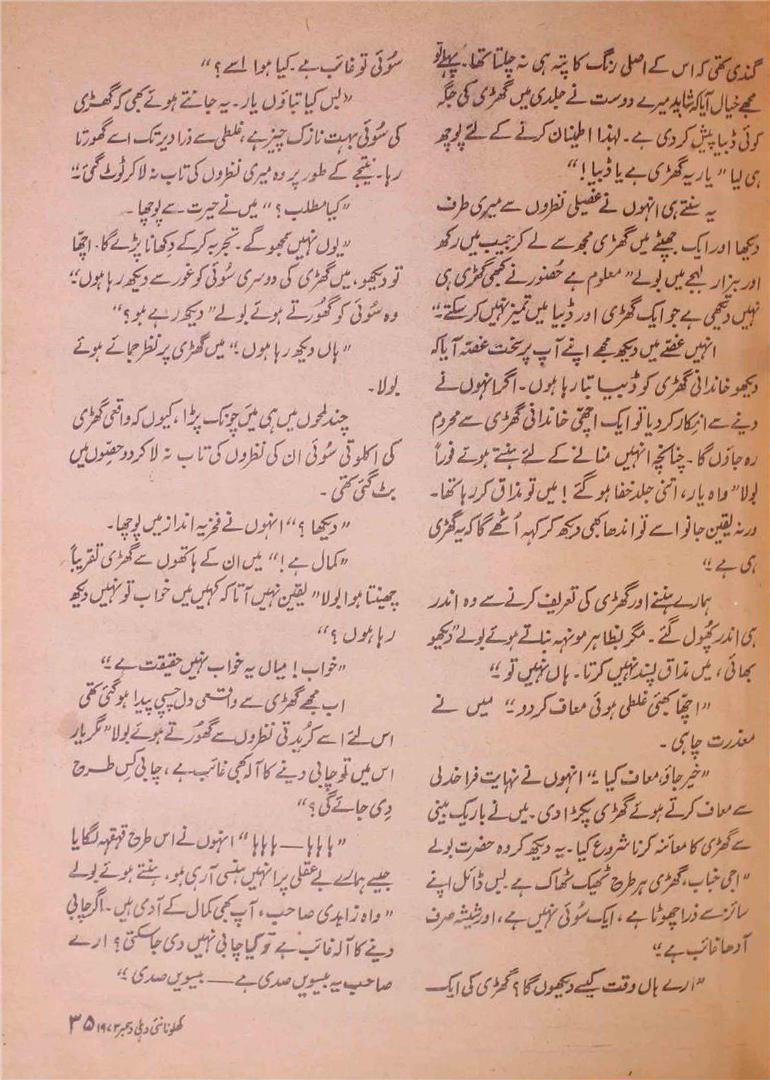 گندی تھی کہ اس کے اصلی رنگ کا پتہ ہی نہ چلتا تھا۔ پہلے تو
مجھے خیال آیا کہ شاید میرے دوست نے جلدی میں گھڑی کی جگہ
کوئی ڈبیا پیش کر دی ہے۔ لہٰذا اطینان کرنے کے لئے پوچھ
ہی لیا ”یار یہ گھڑی ہے یا ڈبیا!“
یہ سنتے ہی انہوں نے غصیلی نظروں سے میری طرف
دیکھا اور ایک جھپٹے میں گھڑی مجھ سے لے کر جیب میں رکھ
اور بیزار لہجے میں بولے ”معلوم ہے حضور نے کبھی گھڑی ہی
نہیں دیکھی ہے جو ایک گھڑی اور ڈبیا میں تمیز نہیں کر سکتے۔“
انہیں غصّے میں دیکھ مجھے اپنے آپ پر سخت غصّہ آیا کہ
دیکھو خاندانی گھڑی کو ڈبیا بتا رہا ہوں۔ اگر انہوں نے
دینے سے انکار کر دیا تو ایک اچھی خاندانی گھڑی سے محروم
رہ جاؤں گا۔ چنانچہ انہیں منانے کے لئے ہنستے ہوئے فوراً
بولا ”واہ یار، اتنی جلد خفا ہو گئے! میں تو مذاق کر رہا تھا۔
ورنہ یقین جانو اسے تو اندھا بھی دیکھ کر کہہ اُٹھے گا کہ یہ گھڑی
ہی ہے۔“
ہمارے ہنسنے اور گھڑی کی تعریف کرنے سے وہ اندر
ہی اندر پھُول گئے۔ مگر بظاہر مونہہ بناتے ہوئے بولے ”دیکھو
بھائی، میں مذاق پسند نہیں کرتا۔ ہاں نہیں تو۔“
”اچھّا بھئی غلطی ہوئی معاف کر دو۔“ میں نے
معذرت چاہی۔
”خیر جاؤ، معاف کیا۔“ انہوں نے نہایت فراخدلی
سے معاف کرتے ہوئے گھڑی پکڑا دی۔ میں نے باریک بینی
سے گھڑی کا معائنہ کرنا شروع کیا۔ یہ دیکھ کر وہ حضرت بولے
”اجی جناب، گھڑی ہر طرح ٹھیک ٹھاک ہے۔ بس ڈائل اپنے
سائز سے ذرا چھوٹا ہے، ایک سُوئی نہیں ہے، اور شیشہ صرف
آدھا غائب ہے۔“
”ارے ہاں وقت کیسے دیکھوں گا؟ گھڑی کی ایک
سُوئی تو غائب ہے۔ کیا ہوا اسے؟“
”بس کیا بتاؤں یار۔ یہ جانتے ہوئے بھی کہ گھڑی
کی سُوئی بہت نازک چیز ہے، غلطی سے ذرا دیر تک اسے گھورتا
رہا۔ نتیجے کے طور پر وہ میری نظروں کی تاب نہ لا کر ٹوٹ گئی۔“
”کیا مطلب؟“ میں نے حیرت سے پوچھا۔
”یوں نہیں سمجھو گے۔ تجربہ کر کے دِکھانا پڑے گا۔ اچھّا
تو دیکھو، میں گھڑی کی دوسری سُوئی کو غور سے دیکھ رہا ہوں۔“
وہ سُوئی کو گھُورتے ہوئے بولے ”دیکھ رہے ہو؟“
”ہاں دیکھ رہا ہوں۔“ میں گھڑی پر نظر جمائے ہوئے
بولا۔
چند لمحوں میں ہی میں چونک پڑا، کیوں کہ واقعی گھڑی
کی اکلوتی سُوئی ان کی نظروں کی تاب نہ لا کر دو حصّوں میں
بٹ گئی تھی۔
”دیکھا؟“ انہوں نے فخریہ انداز میں پوچھا۔
”کمال ہے!“ میں ان کے ہاتھوں سے گھڑی تقریباً
چھینتا ہوا بولا ”یقین نہیں آتا کہ کہیں میں خواب تو نہیں دیکھ
رہا ہوں؟“
”خواب! میاں یہ خواب نہیں حقیقت ہے۔“
اب مجھے گھڑی سے واقعی دل چسپی پیدا ہو گئی تھی
اس لئے اسے کُریدتی نظروں سے گھُورتے ہوئے بولا ”مگر یار
اس میں تو چابی دینے کا آلہ بھی غائب ہے، چابی کس طرح
دِی جائے گی؟“
”ہاہاہا — ہاہاہا“ انہوں نے اس طرح قہقہہ لگایا
جیسے ہمارے بے عقلی پر انہیں ہنسی آ رہی ہو، ہنستے ہوئے بولے
”واہ زاہدی صاحب، آپ بھی کمال کے آدمی ہیں۔ اگر چابی
دینے کا آلہ غائب ہے تو کیا چابی نہیں دی جا سکتی؟ ارے
صاحب یہ بیسویں صدی ہے — بیسویں صدی۔“
کھلونا نئی دہلی دسمبر ۱۹۷۲ ۳۵